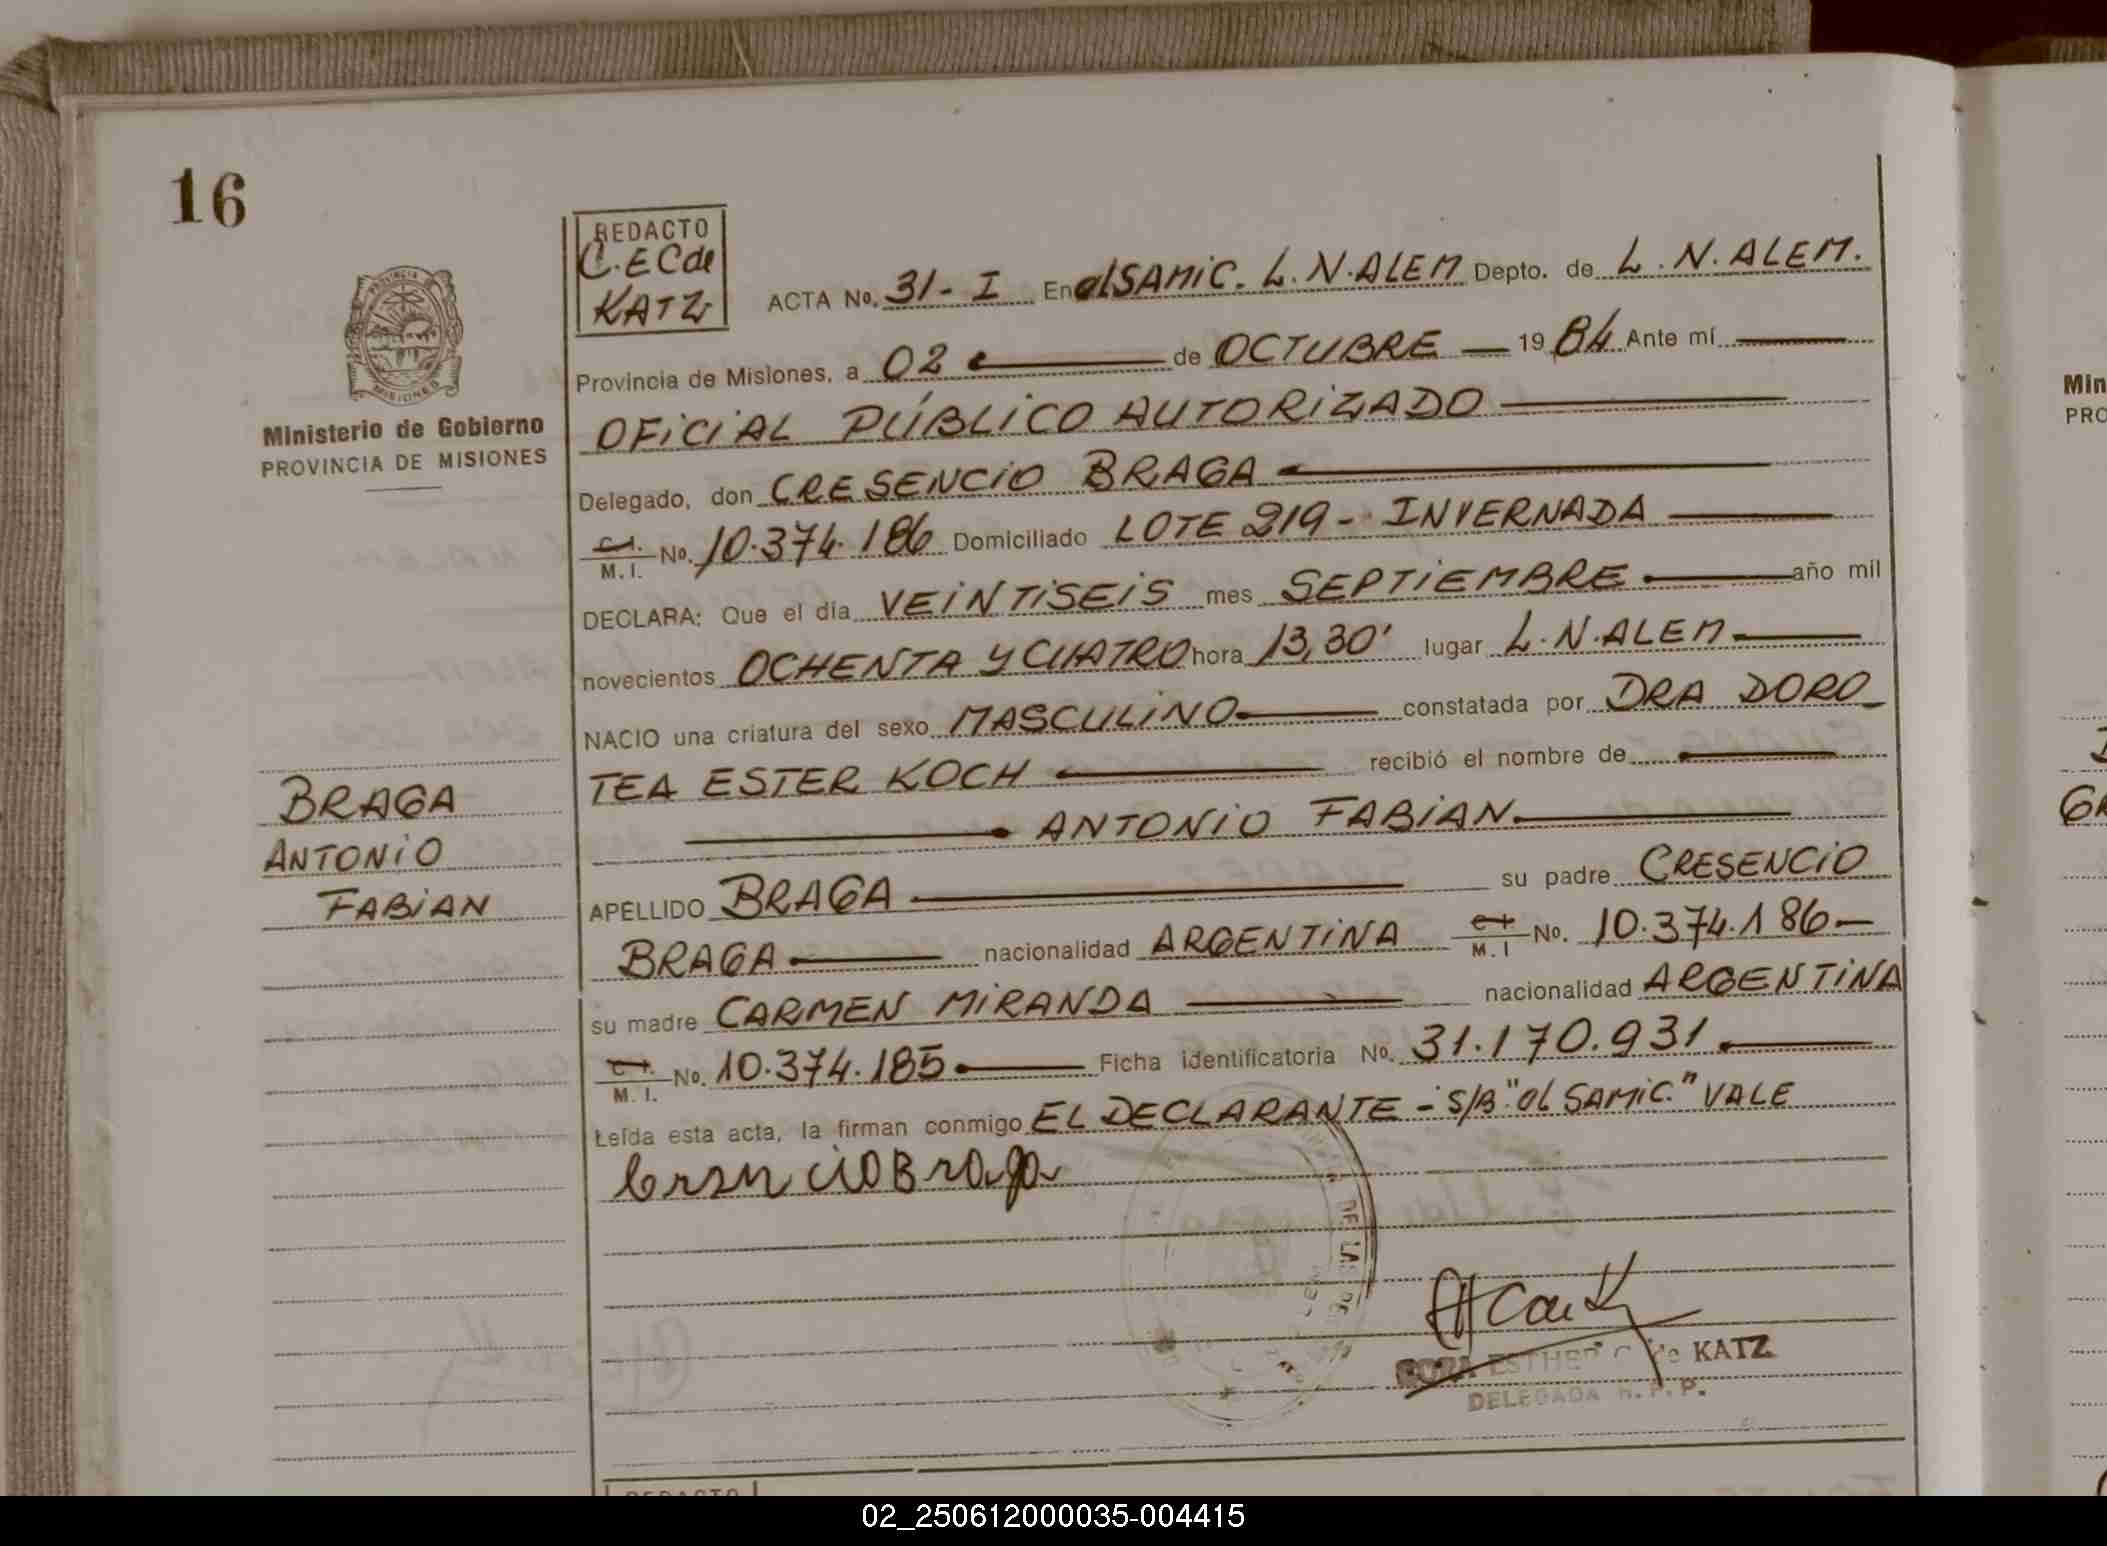 16
REDACTO
C. E C de
KATZ
ACTA No. 31 - I En el SAMIC. L. N. ALEM Depto. de L. N. ALEM.
Provincia de Misiones, a 02 de OCTUBRE 19 84 Ante mí
OFICIAL PÚBLICO AUTORIZADO
Delegado, don CRESENCIO BRAGA
C.I. M. I. No. 10.374.186 Domiciliado LOTE 219 - INVERNADA
DECLARA: Que el día VEINTISEIS mes SEPTIEMBRE año mil
novecientos OCHENTA Y CUATRO hora 13,30' lugar L. N. ALEM
NACIO una criatura del sexo MASCULINO constatada por DRA DORO_
TEA ESTER KOCH recibió el nombre de
ANTONIO FABIAN
APELLIDO BRAGA su padre CRESENCIO
BRAGA nacionalidad ARGENTINA C.I. M. I No. 10.374.186
su madre CARMEN MIRANDA nacionalidad ARGENTINA
C.I. M. I. No. 10.374.185 Ficha identificatoria No. 31.170.931
Leída esta acta, la firman conmigo EL DECLARANTE - S/B "el SAMIC." VALE
Ministerio de Gobierno
PROVINCIA DE MISIONES
PROVINCIA
MISIONES
BRAGA
ANTONIO
FABIAN
Cresencio Braga
ESTHER C. de KATZ
DELEGADA R. P. P.
REDACTO
Min
PRO
02_250612000035-004415